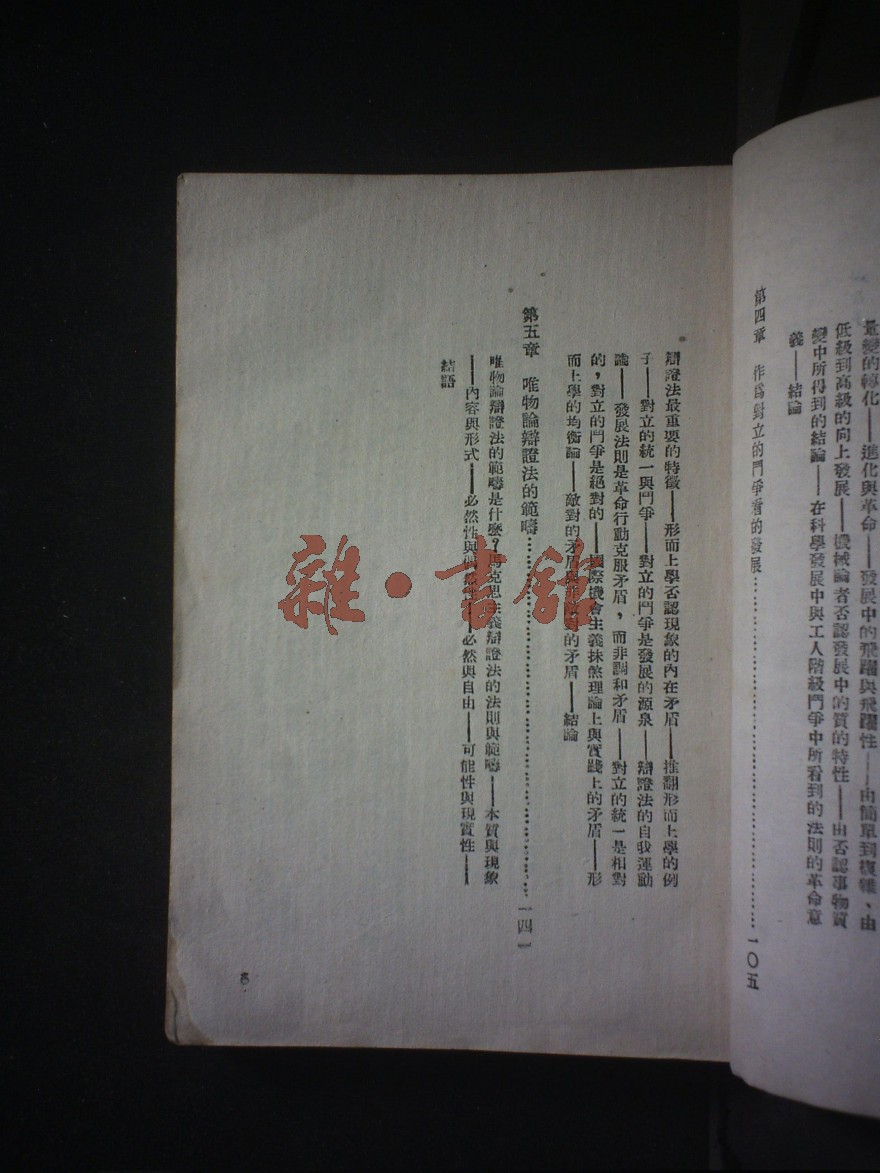 量變的轉化——進化與革命——發展中的飛躍與飛躍性——由簡單到複雜、由
低級到高級的向上發展——機械論者否認發展中的質的特性——由否認事物質
變中所得到的結論——在科學發展中與工人階級鬥爭中所看到的法則的革命意
義——結論
第四章 作爲對立的鬥爭看的發展……………………………………一〇五
辯證法最重要的特徵——形而上學否認現象的內在矛盾——推翻形而上學的例
子——對立的統一與鬥爭——對立的鬥爭是發展的源泉——辯證法的自我運動
論——發展法則是革命行動克服矛盾，而非調和矛盾——對立的統一是相對
的，對立的鬥爭是絕對的——國際機會主義抹煞理論上與實踐上的矛盾——形
而上學的均衡論——敵對的矛盾與非敵對的矛盾——結論
第五章 唯物論辯證法的範疇……………………………………一四一
唯物論辯證法的範疇是什麼？馬克思主義辯證法的法則與範疇——本質與現象
——內容與形式——必然性與偶然性——必然與自由——可能性與現實性——
結語
雜·書館